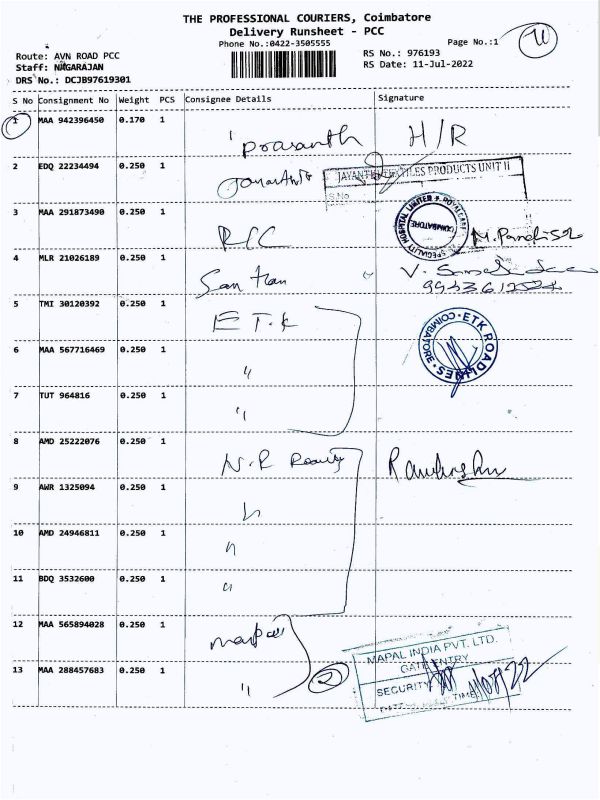 THE PROFESSIONAL COURIERS, Coimbatore
Delivery Runsheet - PCC
Phone No.:0422-3505555
Page No.:1
Route: AVN ROAD PCC
RS No.: 976193
Staff: NAGARAJAN
RS Date: 11-Jul-2022
DRS No.: DCJB97619301
S No Consignment No Weight PCS Consignee Details Signature
1 MAA 942396450 0.170 1 Prasanth H/R
2 EDQ 22234494 0.250 1 JAYANTHI TEXTILES PRODUCTS UNIT II
S.No
3 MAA 291873490 0.250 1 COIMBATORE
4 MLR 21026189 0.250 1 San
5 TMI 30120392 0.250 1 E T.K
ETK ROADLINES COIMBATORE
6 MAA 567716469 0.250 1 "
7 TUT 964816 0.250 1 "
8 AMD 25222076 0.250 1 N.R
9 AWR 1325094 0.250 1 "
10 AMD 24946811 0.250 1 "
11 BDQ 3532600 0.250 1 "
12 MAA 565894028 0.250 1 mapal
MAPAL INDIA PVT. LTD.
GATE ENTRY
13 MAA 288457683 0.250 1 " 2
SECURITY
TIME